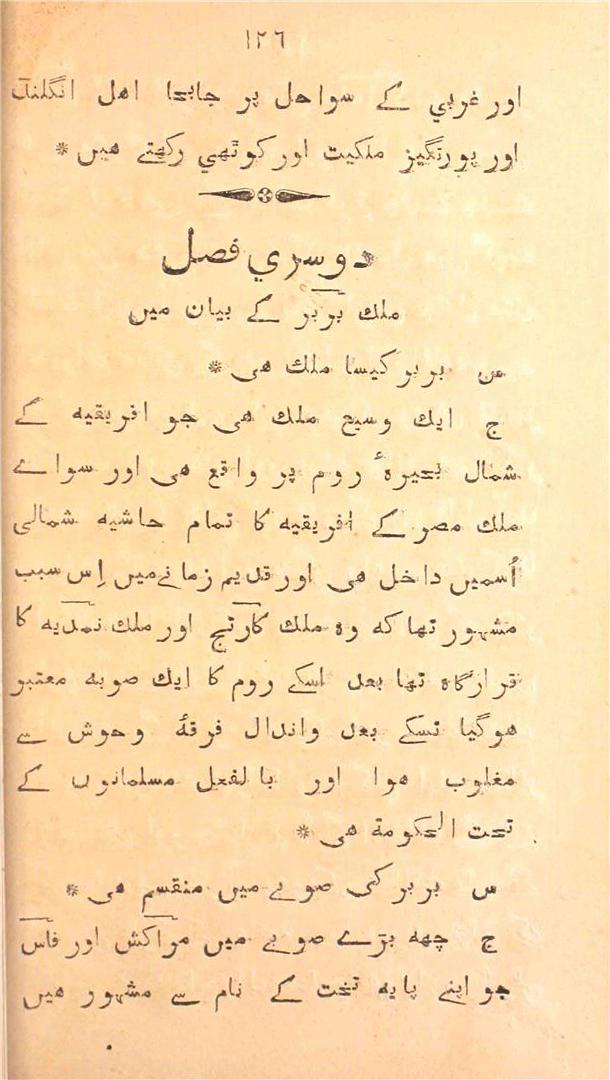 ١٢٦
اور غربي کے سواحل پر جابجا اهل انگلنڈ
اور پورتگيز ملکيت اور کوٹهي رکهتے هيں *
دوسري فصل
ملك بربر کے بيان ميں
س بربر کيسا ملك هى *
ج ايك وسيع ملك هى جو افريقيه کے
شمال بحيرۀ روم پر واقع هى اور سواے
ملك مصر کے افريقيه کا تمام حاشيه شمالى
اُسميں داخل هى اور قديم زمانے ميں اِس سبب
مشهور تها که وه ملك کارتهج اور ملك نمديه کا
قرارگاه تها بعد اسکے روم کا ايك صوبه معتبر
هوگيا تسکے بعد واندال فرقۀ وحوش سے
مغلوب هوا اور بالفعل مسلمانوں کے
تحت الحکومة هى *
س بربر کئى صوبے ميں منقسم هى *
ج چهه بڑے صوبے ميں مراکش اور فاس
جو اپنے پايه تخت کے نام سے مشهور هيں